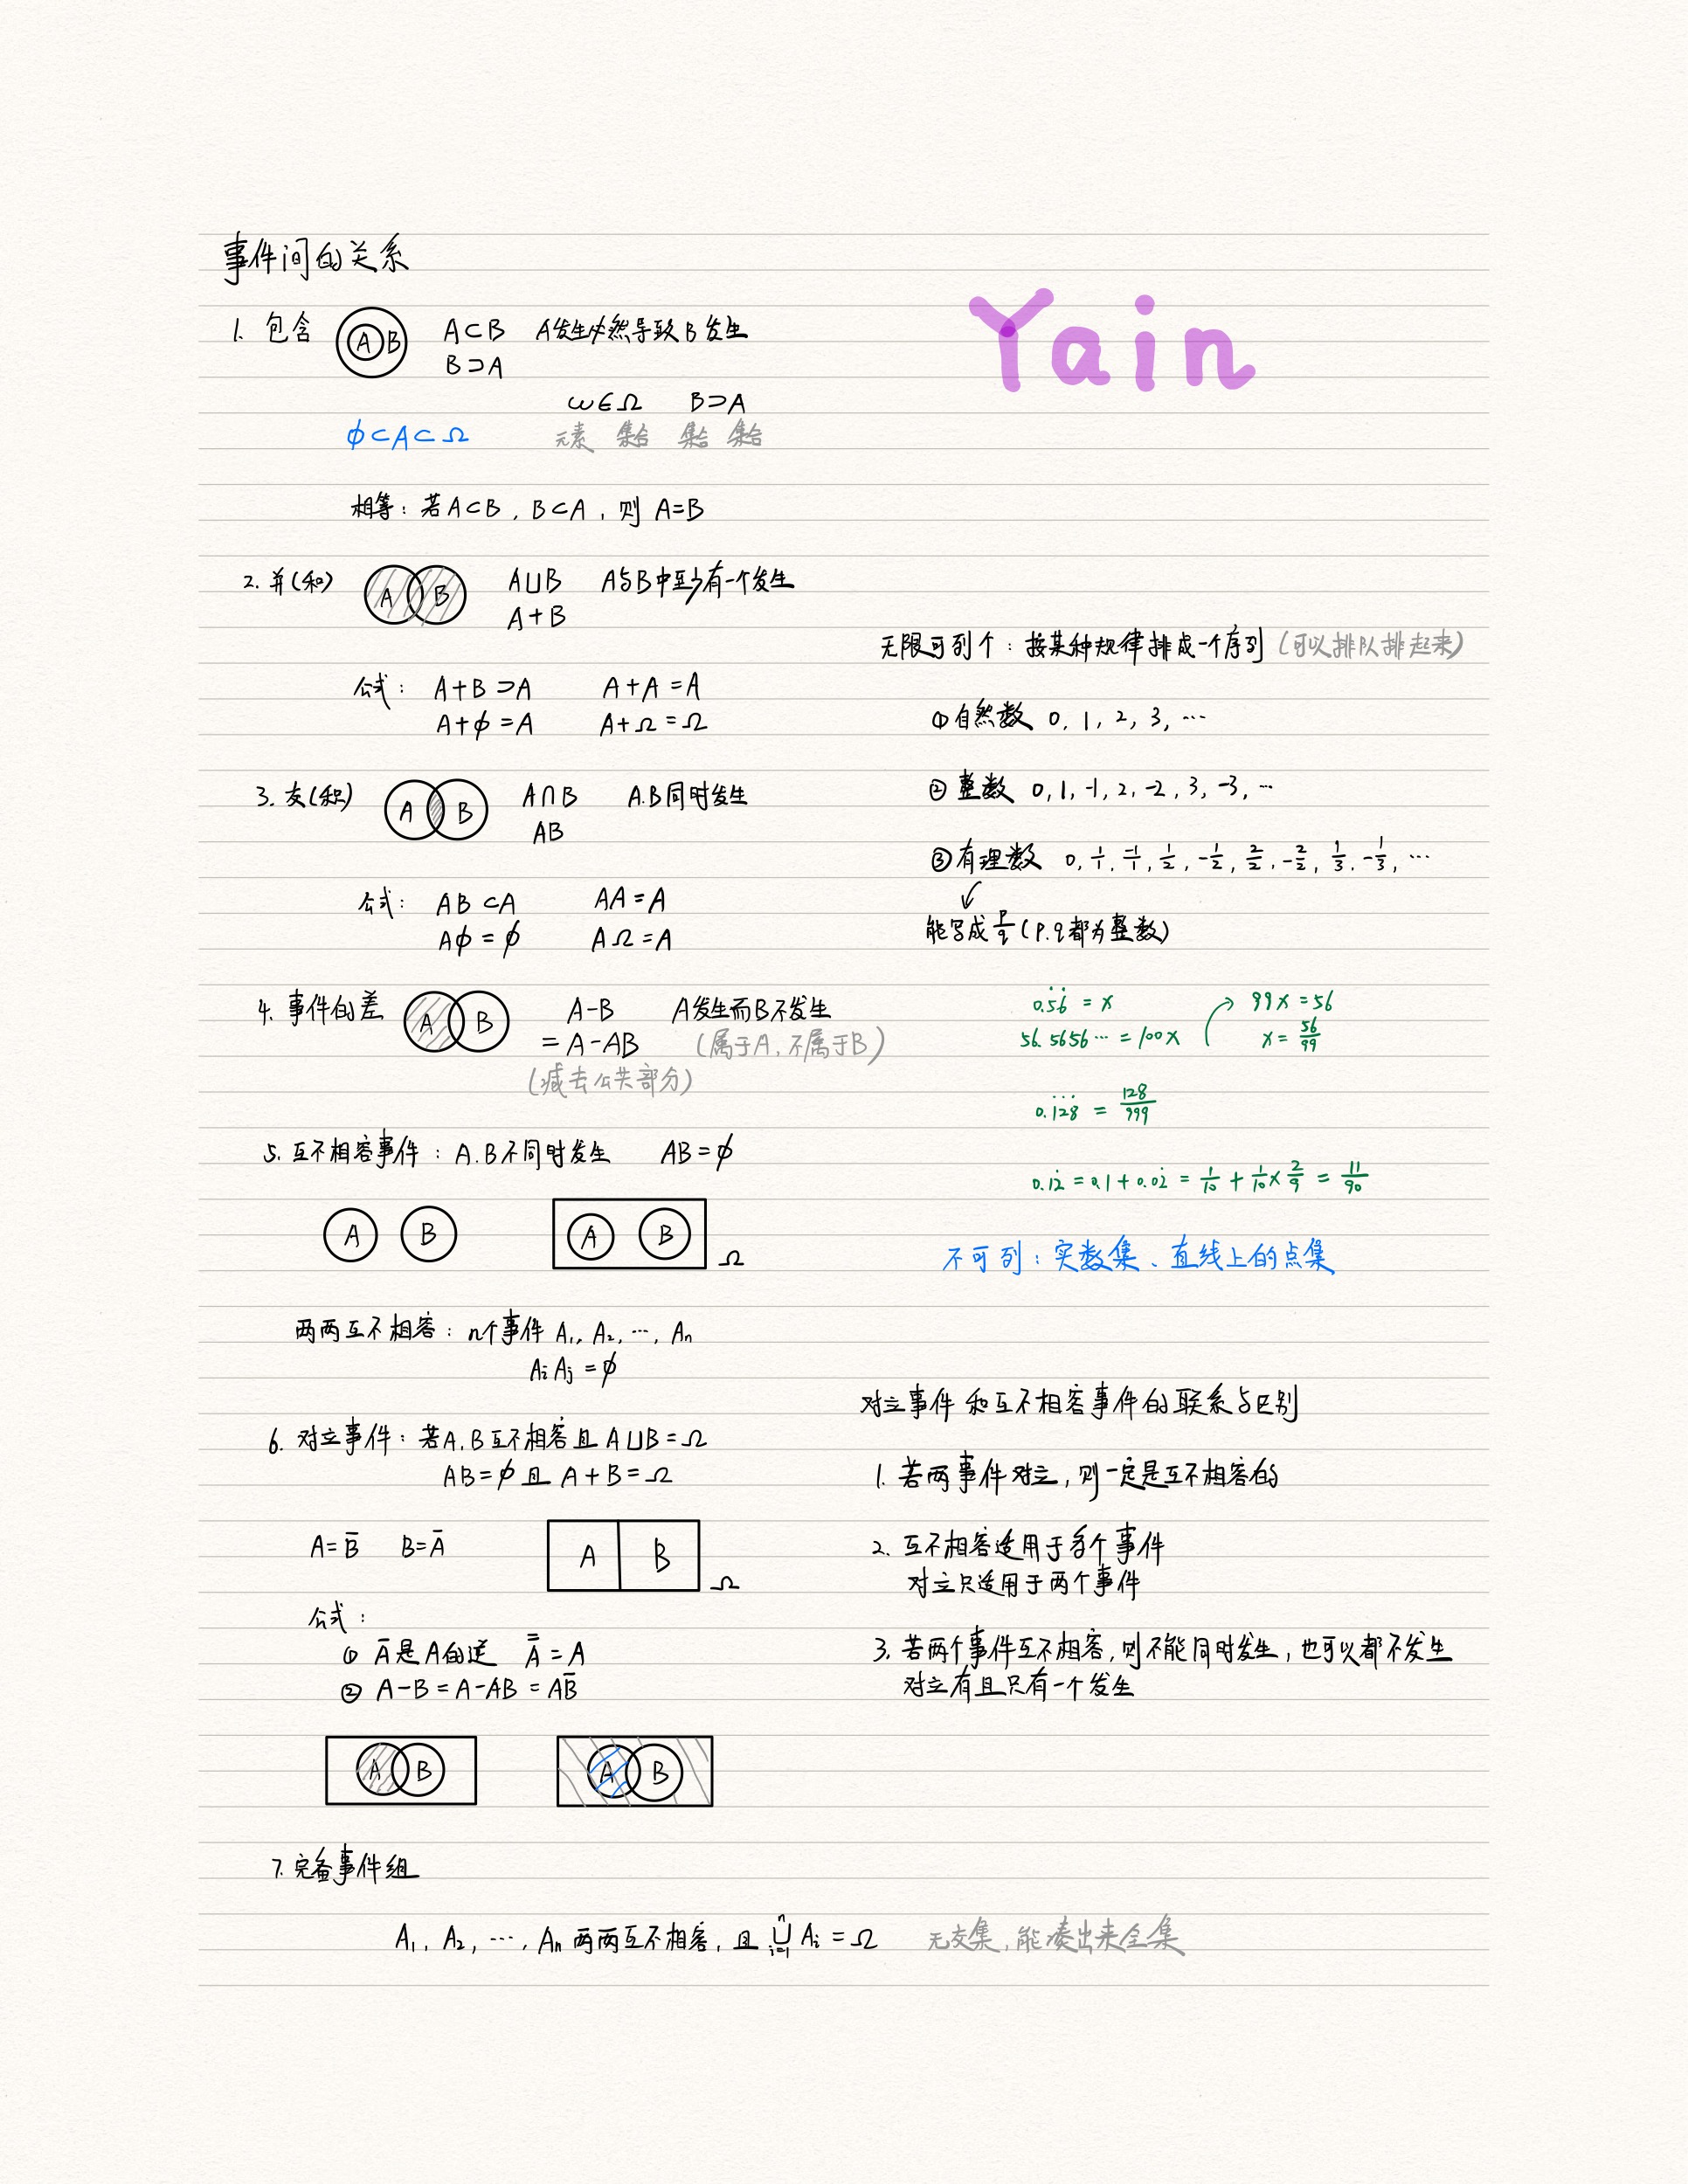 事件间的关系
Yain
1. 包含 A B A⊂B A发生必然导致B发生
B⊃A
ω∈Ω B⊃A
ϕ⊂A⊂Ω 元素 集合 集合 集合
相等：若A⊂B，B⊂A，则 A=B
2. 并(和) A B A∪B A与B中至少有一个发生
A+B
公式： A+B⊃A A+A=A
A+ϕ=A A+Ω=Ω
3. 交(积) A B A∩B A.B同时发生
AB
公式： AB⊂A AA=A
Aϕ=ϕ AΩ=A
4. 事件的差 A B A-B A发生而B不发生
=A-AB (属于A，不属于B)
(减去公共部分)
5. 互不相容事件：A.B不同时发生 AB=ϕ
A B A B Ω
两两互不相容：n个事件 A₁, A₂, ⋯, Aₙ
AᵢAⱼ=ϕ
6. 对立事件：若A.B互不相容且 A∪B=Ω
AB=ϕ且 A+B=Ω
A=B̄ B=Ā A B Ω
公式：
① Ā是A的逆 A̿=A
② A-B=A-AB=AB̄
A B A B
7. 完备事件组
A₁, A₂, ⋯, Aₙ 两两互不相容，且 ⋃ᵢ₌₁ⁿ Aᵢ=Ω 无交集，能凑出来全集
无限可列个：按某种规律排成一个序列 (可以排队排起来)
① 自然数 0, 1, 2, 3, ⋯
② 整数 0, 1, -1, 2, -2, 3, -3, ⋯
③ 有理数 0, 1/1, -1/1, 1/2, -1/2, 2/2, -2/2, 1/3, -1/3, ⋯
能写成 p/q (p.q都为整数)
0.5̇6̇ = x 99x=56
56.5656⋯ = 100x x=56/99
0.1̇2̇8̇ = 128/999
0.12̇ = 0.1+0.02̇ = 1/10 + 1/10×2/9 = 11/90
不可列：实数集、直线上的点集
对立事件和互不相容事件的联系与区别
1. 若两事件对立，则一定是互不相容的
2. 互不相容适用于多个事件
对立只适用于两个事件
3. 若两个事件互不相容，则不能同时发生，也可以都不发生
对立有且只有一个发生